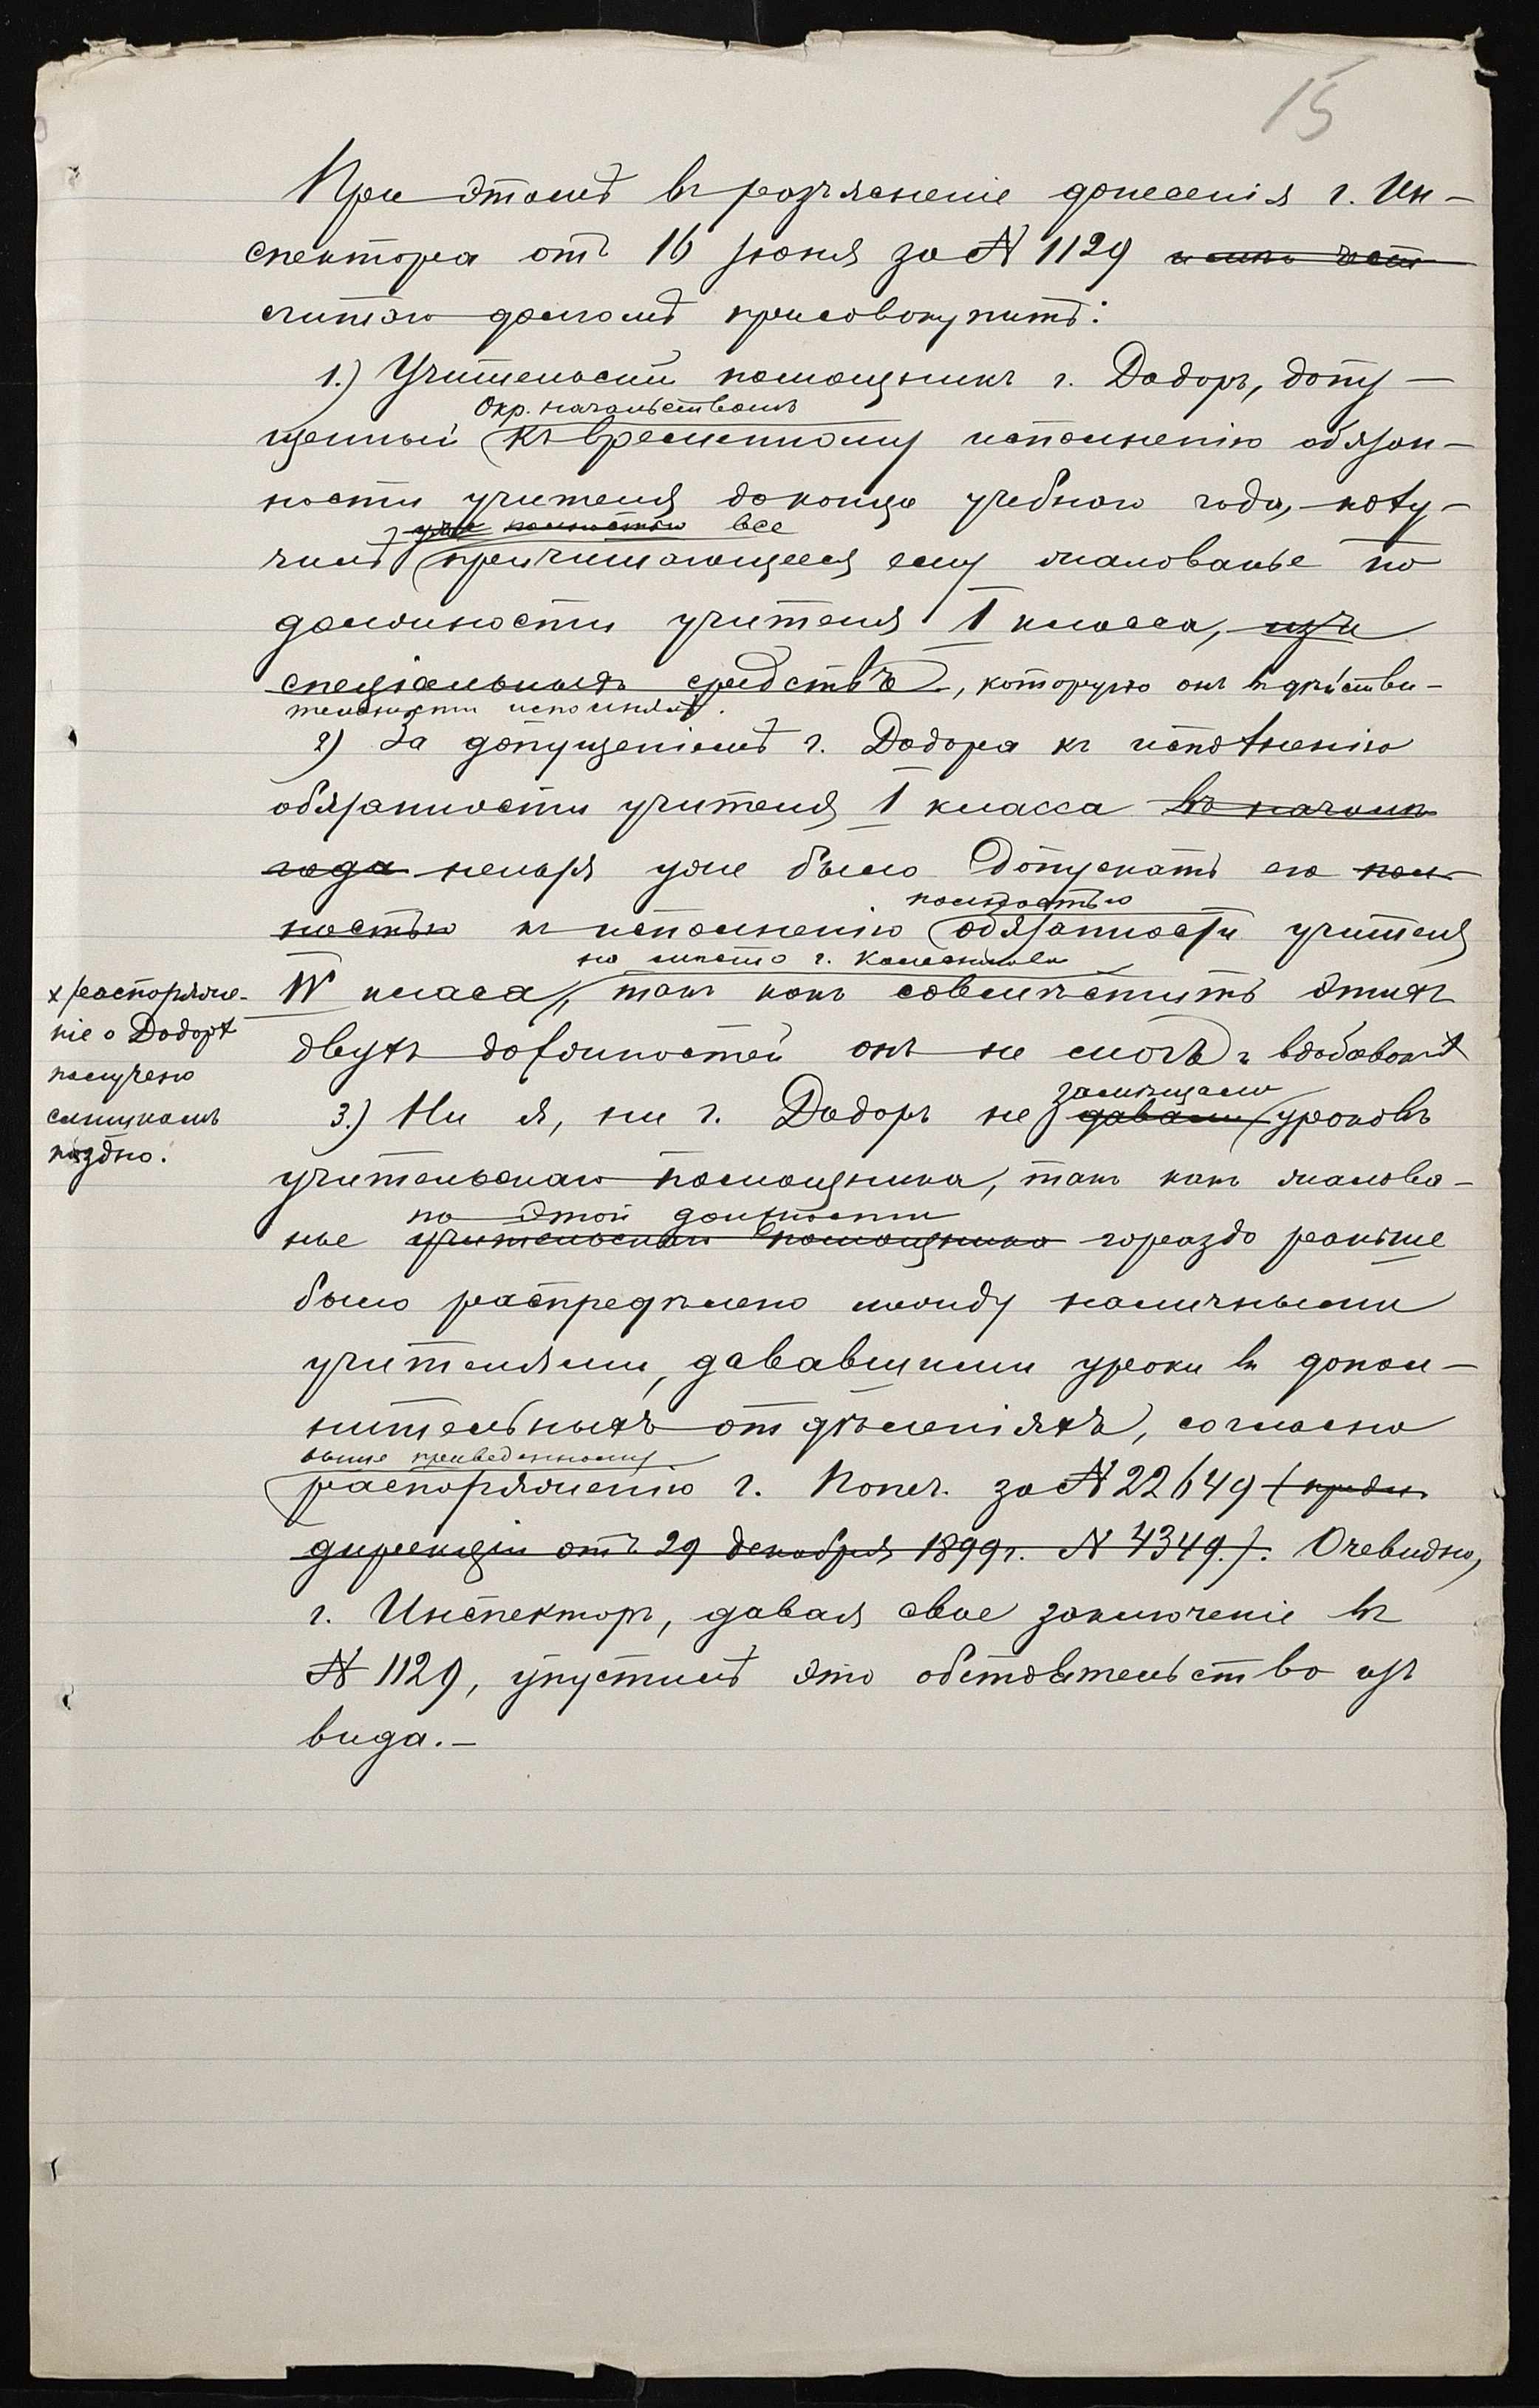 15
При этомъ въ разъясненіе донесенія г. Ин-
спектора отъ 16 Іюня за № 1129
считаю долгомъ присовокупить:
1.) Учительскій помощникъ г. Дадоръ, допу-
Окр. начальствомъ
щенный къ временному исполненію обязан-
ности учителя до конца учебнаго года, полу-
уже полностью все
чилъ причитающееся ему жалованье по
должности учителя I класса, изъ
спеціальныхъ средствъ, которую онъ въ дѣйстви-
тельности исполнялъ.
2) За допущеніемъ г. Дадора къ исполненію
обязанности учителя I класса въ началѣ
года нельзя уже было допускать его пол-
полностью
ностью къ исполненію обязанности учителя
на мѣсто г. Колесникова
IV класса, такъ какъ совмѣстить этихъ
двухъ должностей онъ не могъ и вдобавокъ х
х распоряже-
ніе о Дадорѣ
получено
слишкомъ
поздно.
замѣщали
3.) Ни я, ни г. Дадоръ не давали уроковъ
учительскаго помощника, такъ какъ жалова-
по этой должности
нье учительскаго помощника гораздо раньше
было распредѣлено между наличными
учителями, дававшими уроки въ допол-
нительныхъ отдѣленіяхъ, согласно
выше приведенному
распоряженію г. Попеч. за № 22649 (предл.
дирекціи отъ 29 декабря 1899 г. № 4349.). Очевидно,
г. Инспекторъ, давая свое заключеніе въ
№ 1129, упустилъ это обстоятельство изъ
вида.-